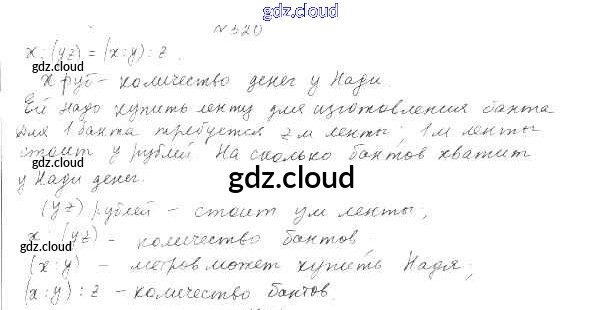 gdz.cloud
№ 320
x : (yz) = (x : y) : z.
gdz.cloud
x руб – количество денег у Нади.
Ей надо купить ленту для изготовления банта
Для 1 банта требуется z м ленты; 1 м ленты
стоит y рублей. На сколько бантов хватит
у Нади денег.
gdz.cloud
gdz.cloud
(yz) рублей – стоит y м ленты;
x : (yz) – количество бантов
gdz.cloud
gdz.cloud
(x : y) – метров может купить Надя;
(x : y) : z – количество бантов.
gdz.cloud
gdz.cloud